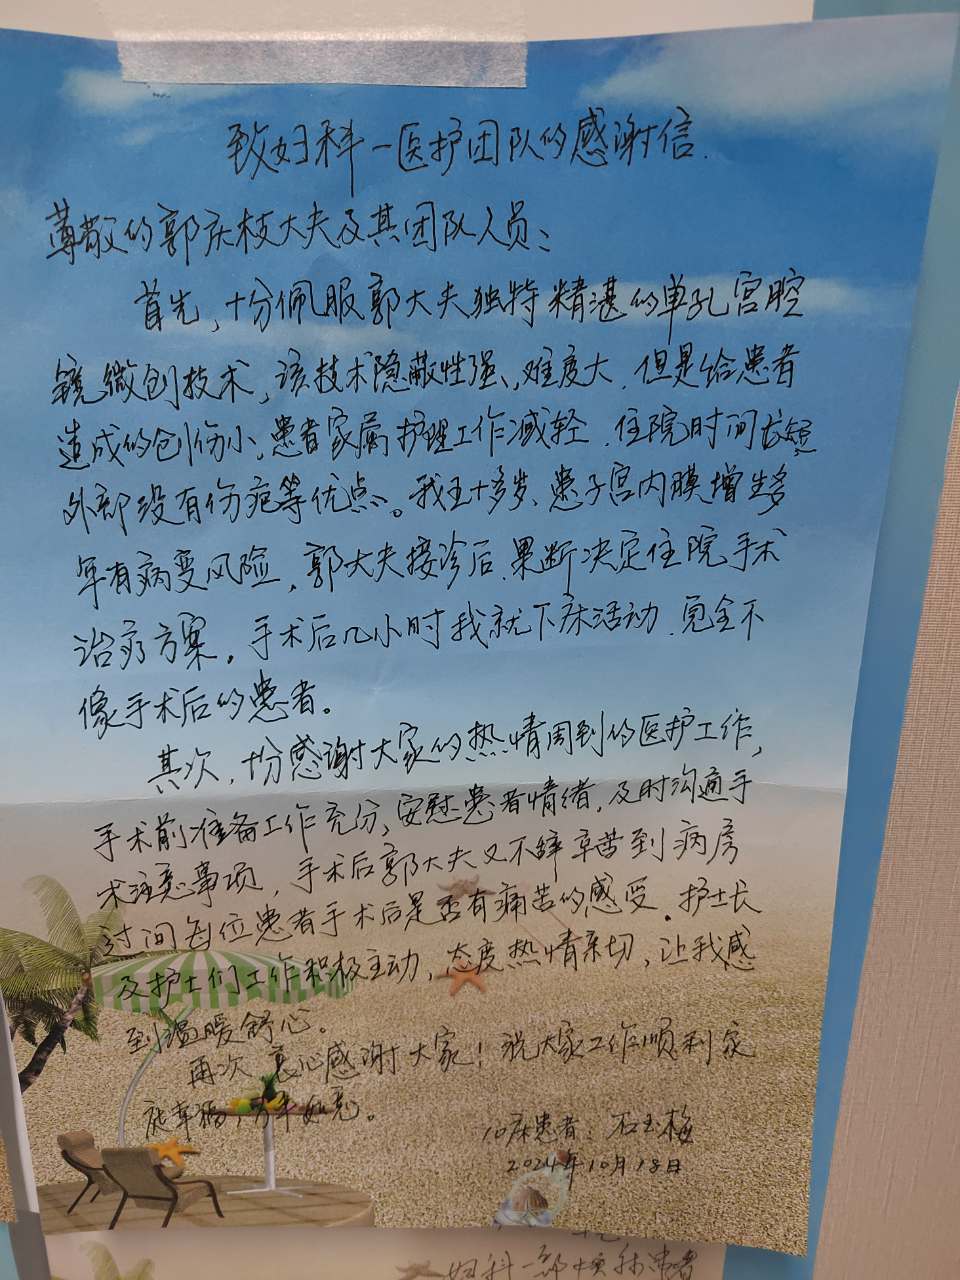 致妇科一医护团队的感谢信.
尊敬的郭庆枝大夫及其团队人员：
首先，十分佩服郭大夫独特精湛的单孔宫腔
镜微创技术，该技术隐蔽性强、难度大．但是给患者
造成的创伤小、患者家属护理工作减轻．住院时间短
外部没有伤疤等优点。我五十多岁、患子宫内膜增生多
年有病变风险，郭大夫接诊后，果断决定住院手术
治疗方案。手术后几小时我就下床活动．完全不
像手术后的患者。
其次，十分感谢大家的热情周到的医护工作，
手术前准备工作充分，安慰患者情绪，及时沟通手
术注意事项，手术后郭大夫又不辞辛苦到病房
过问每位患者手术后是否有痛苦的感受。护士长
及护士们工作积极主动，态度热情亲切，让我感
到温暖舒心。
再次衷心感谢大家！祝大家工作顺利家
庭幸福，万事如意。
10床患者：石玉梅
2024年10月18日
妇科一部
患者